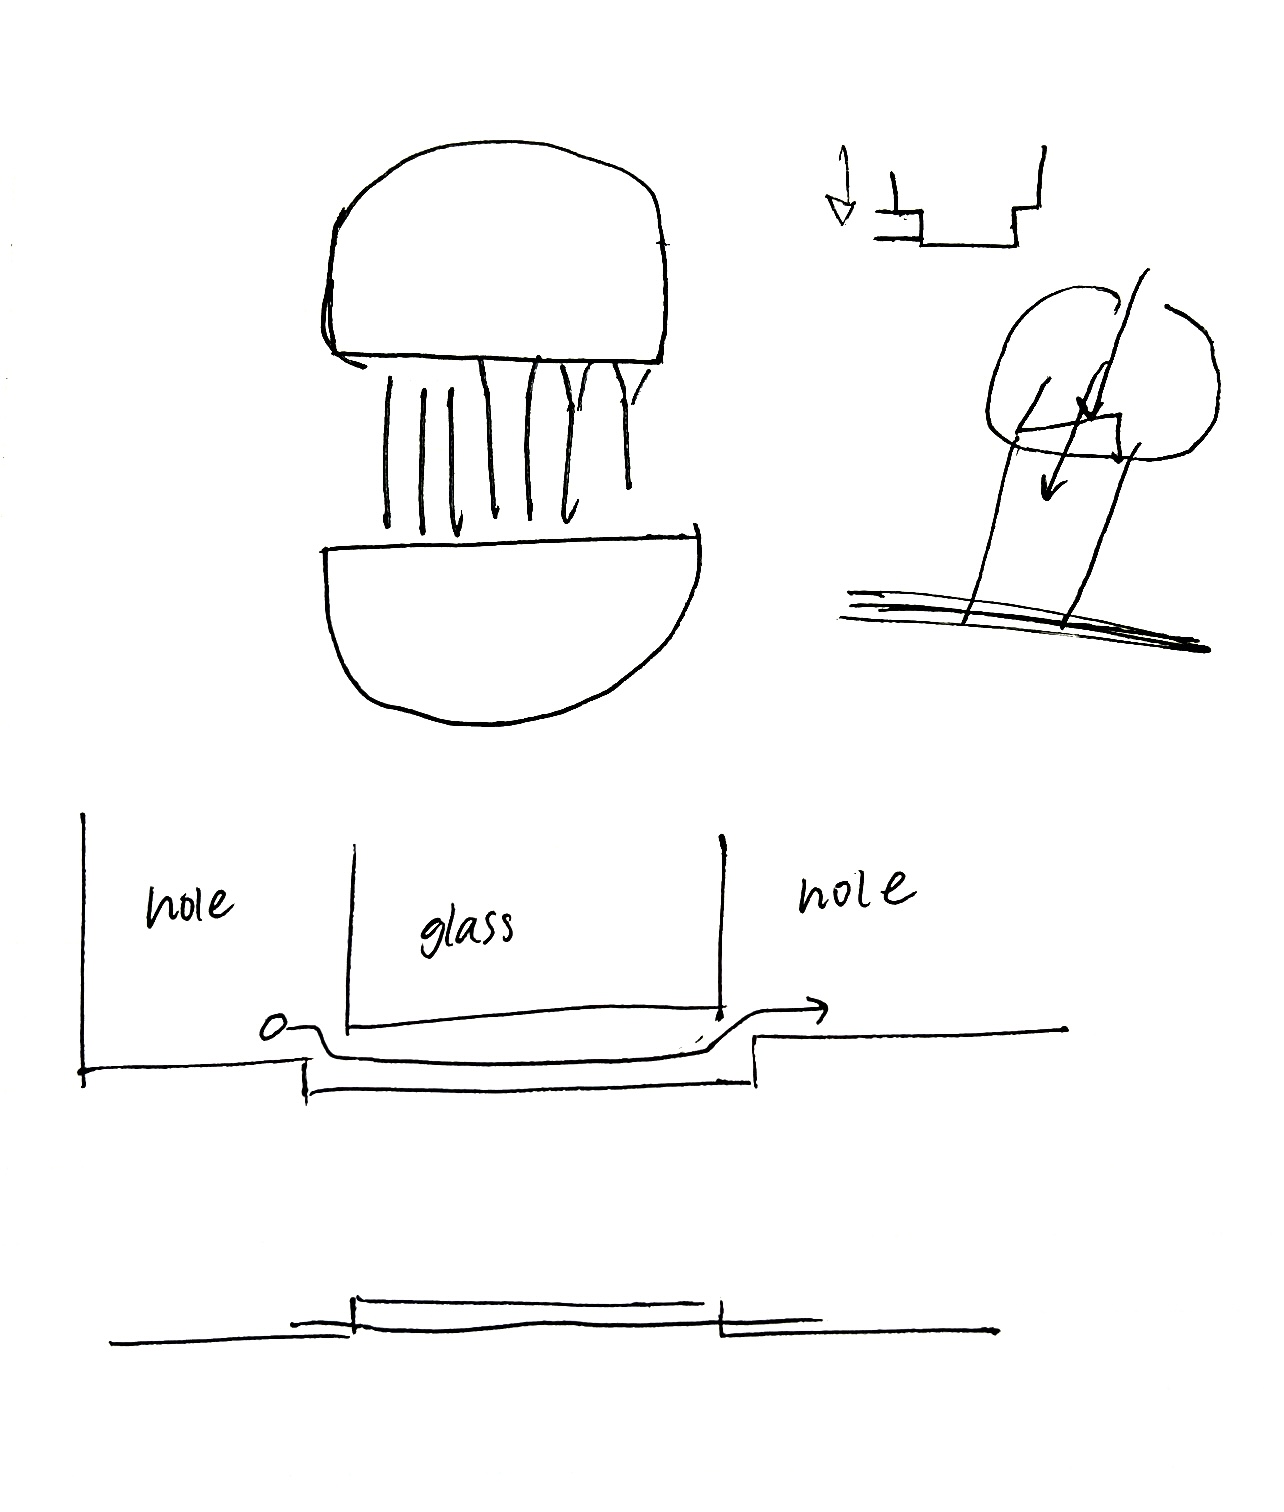 hole
glass
hole